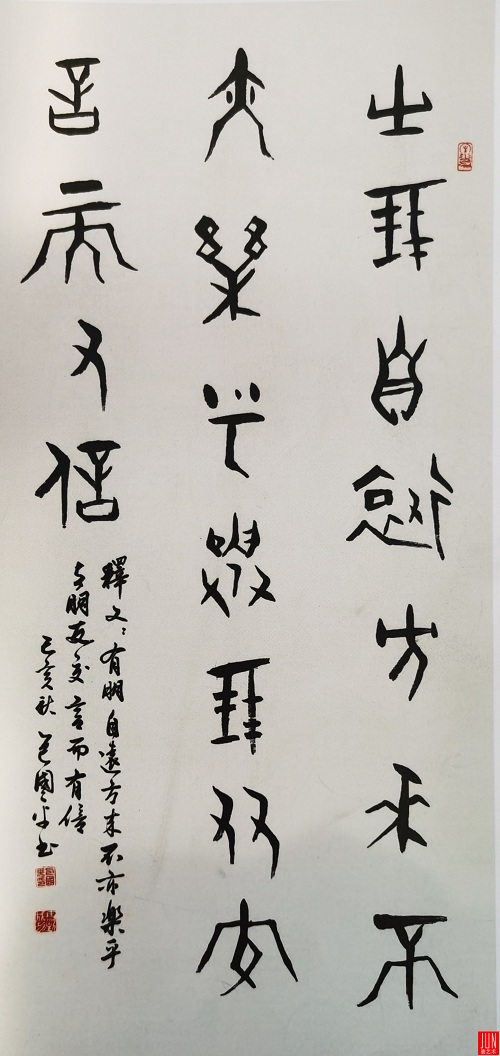 有朋自遠方來不
亦樂乎與朋友交
言而有信
釋文：有朋自遠方来不亦樂乎
与朋友交言而有信
己亥秋國平书
JUN